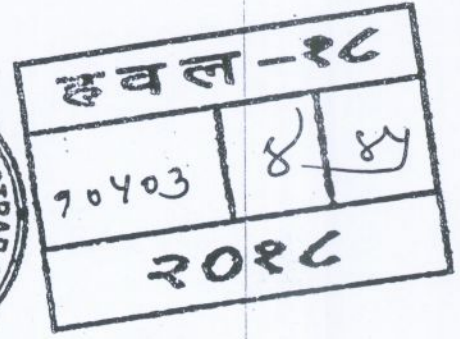 हवल - १८
१०५०३ ४ ४५
२०१८